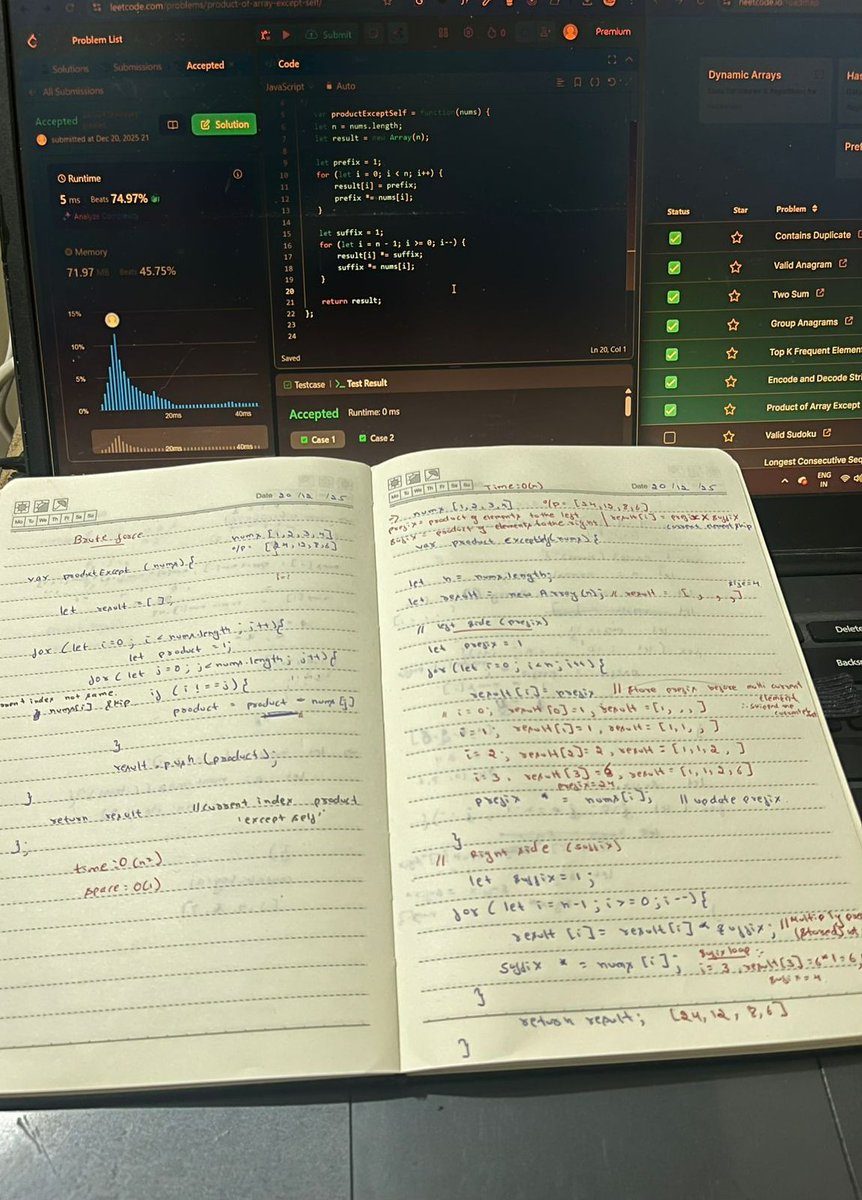 leetcode.com/problems/product-of-array-except-self/
Problem List
Submit
0
Premium
Solutions
Submissions
Accepted
All Submissions
Accepted
submitted at Dec 20, 2025 21
Solution
Runtime
5 ms
Beats 74.97%
Analyze Complexity
Memory
71.97 MB
Beats 45.75%
15%
10%
5%
0%
20ms
40ms
20ms
40ms
Code
JavaScript
Auto
5 var productExceptSelf = function(nums) {
6 let n = nums.length;
7 let result = new Array(n);
8
9 let prefix = 1;
10 for (let i = 0; i < n; i++) {
11 result[i] = prefix;
12 prefix *= nums[i];
13 }
14
15 let suffix = 1;
16 for (let i = n - 1; i >= 0; i--) {
17 result[i] *= suffix;
18 suffix *= nums[i];
19 }
20
21 return result;
22 };
23
24
Saved
Ln 20, Col 1
Testcase
Test Result
Accepted
Runtime: 0 ms
Case 1
Case 2
Dynamic Arrays
Has
Pref
Status
Star
Problem
Contains Duplicate
Valid Anagram
Two Sum
Group Anagrams
Top K Frequent Elemen
Encode and Decode Stri
Product of Array Except
Valid Sudoku
Longest Consecutive Seq
ENG
IN
Delete
Backs
Date 20 / 12 / 25
Mo Tu We Th Fr Sa Su
Brute force
nums [1,2,3,4]
o/p = [24,12,8,6]
var productExcept (nums) {
let result = [];
for (let i=0; i < nums.length; i++){
let product = 1;
for (let j=0; j < nums.length; j++){
if (i !== j) {
index not same.
nums[i] skip
product = product * nums[j]
}
result.push (product);
}
return result //current index product
'except self'
};
time: O(n²)
space: O(1)
Mo Tu We Th Fr Sa Su
Time: O(n)
Date 20 / 12 / 25
nums [1,2,3,4] o/p = [24,12,8,6]
prefix = product of elements to the left
result[i] = prefix x suffix
suffix = product of elements to the right
current element skip
var product exceptself(nums) {
let n = nums.length;
size=4
let result = new Array(n); // result = [ , , , ]
// left side (prefix)
let prefix = 1
for (let i=0; i<n; i++){
result[i] = prefix // store prefix before multi current
element
// i = 0; result[0]=1, result = [1, , , ]
i = 1; result[1]=1, result = [1,1, , ]
i = 2; result[2]=2, result = [1,1,2, ]
i = 3, result[3] = 6, result = [1,1,2,6]
prefix=24
prefix * = nums[i]; // update prefix
}
// Right side (suffix)
let suffix = 1;
for (let i = n-1; i>=0; i--){
result [i] = result[i] * suffix; // Multiply pre
(stored)
suffix * = nums [i];
suffix loop:
i = 3, result[3] = 6*1=6,
suffix = 4
}
return result; [24,12,8,6]
}